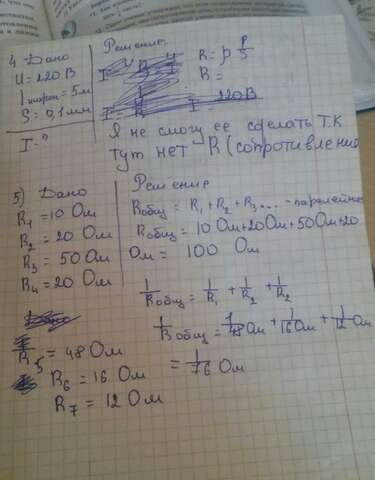 4 Дано
U = 220 В
l нихром = 5м
S = 0,1 мм
I - ?
Решение
R = ρ l/S
R =
220 В
Я не смогу ее сделать т.к
тут нет R (сопротивление
5) Дано
R1 = 10 Ом
R2 = 20 Ом
R3 = 50 Ом
R4 = 20 Ом
R5 = 48 Ом
R6 = 16 Ом
R7 = 12 Ом
Решение
Rобщ = R1 + R2 + R3....
Rобщ = 10 Ом+20Ом+50Ом+20
Ом = 100 Ом
1/Rобщ = 1/R1 + 1/R2 + 1/R2
1/Rобщ = 1/48 Ом + 1/16 Ом + 1/12 Ом
= 1/76 Ом